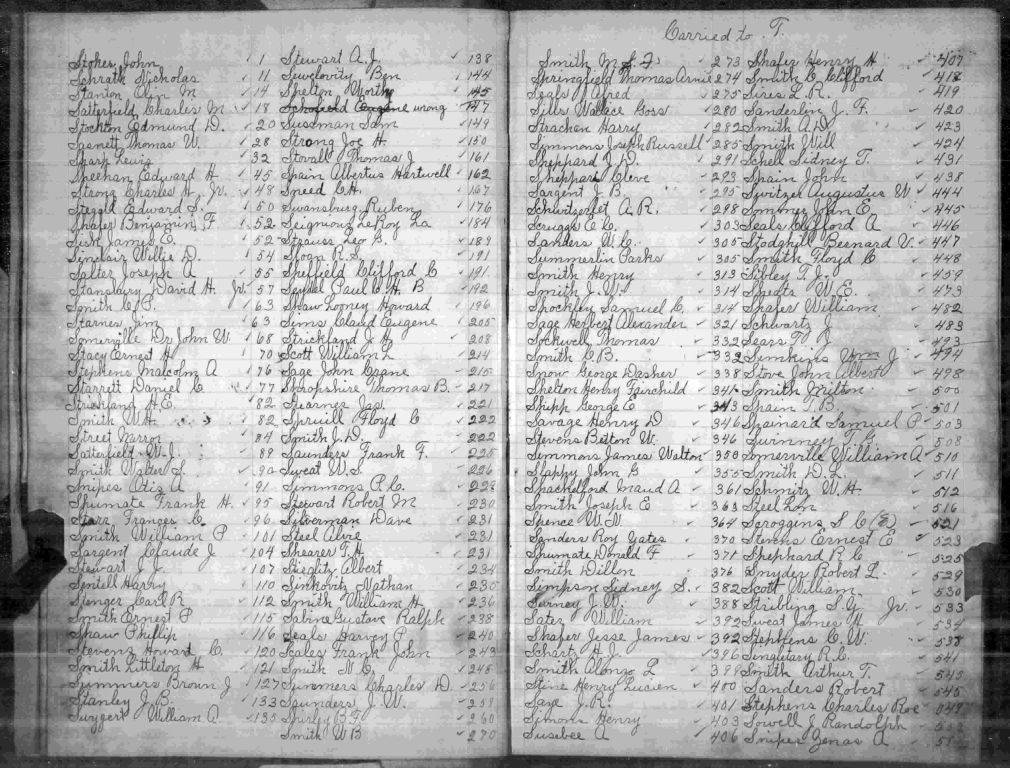 Carried to T.
Stokes, John 1
Schrath Nicholas 11
Stanton Olin M 14
Satterfield, Charles M. 18
Stockton Edmund D. 20
Sasnett Thomas W. 28
Sharp Lewis 32
Sheehan Edward H 45
Strong Charles H. Jr. 48
Steggle Edward S. 50
Shafer Benjamin F 52
Sisk James E. 52
Sinclair Willie D. 54
Salter Joseph A 55
Stansbury David H. Jr 57
Smith C. P. 63
Starnes Jim 63
Somerville Dr John W. 68
Stacy Ernest H 70
Stephens Malcolm A 76
Starrett Daniel C 77
Strickland H.E. 82
Smith W.H. 82
Street Marion 84
Satterfield W. J. 89
Smith Walter S. 90
Snipes Otis A 91
Shumate Frank H. 95
Starr Frances C. 96
Smith William P 101
Sargent Claude J 104
Stewart J. J. 107
Sentell Harry 110
Spenger Carl R 112
Smith Ernest P 115
Shaw Phillip 116
Stevens Howard C. 120
Smith Littleton H 121
Summers Brown J 127
Stanley J. B. 133
Suggert William A. 135
Stewart A. J. 138
Sewelovity Ben 144
Shelton Worthy 145
Schofield Eugene wrong 147
Sussman Sam 149
Strong Joe H. 150
Storall Thomas J 161
Spain Albertus Hartwell 162
Sneed C.H. 167
Swansburg Ruben 176
Seignious LeRoy La 184
Strauss Leo B. 189
Sloan R.S. 191
Sheffield Clifford C 191
Seydel Paul C. H. B 192
Shaw Looney Howard 196
Sims Claud Eugene 205
Strickland J. H. 208
Scott William L 214
Sage John Crane 215
Shropshire Thomas B. 217
Stearnes Jas. 221
Spruill Floyd C 222
Smith J. D. 222
Saunders Frank F. 225
Sweat W. S. 226
Simmons P. C. 228
Stewart Robert M 230
Silverman Dave 231
Steel Alvie 231
Shearer F. H. 231
Steiglty Albert 234
Sinkovitz Nathan 235
Smith William H. 236
Sabine Gustave Ralph 238
Seals Harvey P. 240
Scales Frank John 243
Smith N. C. 248
Summers Charles D. 256
Saunders J. W. 259
Shirley B F 260
Smith W B 270
Smith M. S. F 273
Springfield Thomas Arnie 274
Seals Alfred 275
Sills Wallace Goss 280
Strachan Harry 282
Simmons Joseph Russell 285
Sheppard J. D. 291
Sheppard Cleve 293
Sargent J. B. 295
Schwitzerlet A. R. 298
Scruggs E. C. 303
Sanders W. C. 305
Summerlin Parks 305
Smith Henry 313
Smith J. W. 314
Shockley Samuel C. 314
Sage Herbert Alexander 321
Sockwell Thomas 332
Smith C. B. 332
Snow George Dasher 338
Shelton Henry Fairchild 341
Shipp George E 343
Savage Henry D 346
Stevens Britton W. 346
Simmons James Walton 350
Slappy John G 355
Shackelford Maud A 361
Smith Joseph E 363
Spence W. N 364
Sanders Roy Yates 370
Shumate Donald F 371
Smith Dillon 376
Simpson Sidney S. 382
Surney J. W. 388
Satez William 392
Shafer Jesse James 392
Schartz H. J. 396
Smith Alonzo L 399
Stine Henry Lucien 400
Saye J. R. 401
Simons Henry 403
Susebee A 406
Shafer Henry H 407
Smith C. Clifford 418
Sires L. R. 419
Sanderlin J. F. 420
Smith A. D. 423
Smith Will 424
Schell Sidney T. 431
Spain John 438
Switzer Augustus W 444
Sommer John E. 445
Seals Clifford A 446
Stodghill Bernard V. 447
Smith Floyd C 448
Sibley T. J. 459
Sheats W. E. 473
Shafer William 482
Schwartz J. 483
Sears T. J 493
Simkins Wm J 494
Stove John Albert 498
Smith Milton 500
Spain T. B. 501
Samuel P 503
Surnney T. G. 508
Somerville William A 510
Smith D. L. 511
Schmitz W. H. 512
Steel Lon 516
Scroggins S C (E) 521
Sterns Ernest E 523
Shephard R. C. 525
Snyder Robert L. 529
Scott William 530
Stribling S. Y. Jr. 533
Sweat James H 534
Stephens C. W. 538
Singletary R. C. 541
Smith Arthur T. 545
Sanders Robert 545
Stephens Charles Roe
Sowell J Randolph
Snipes Zenas A